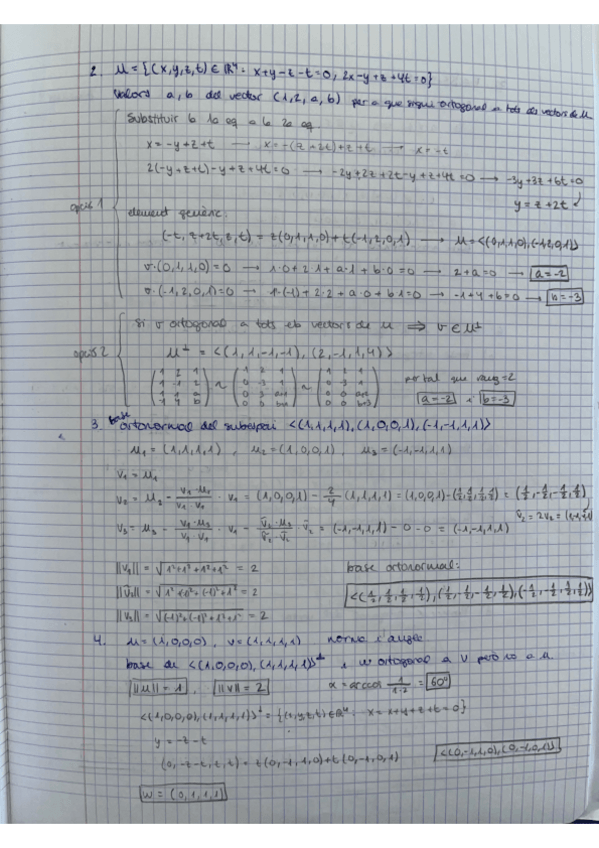 2. U = {(x,y,z,t) ∈ ℝ⁴ : x+y-z-t=0, 2x-y+z+4t=0}
valors a, b del vector (1,2,a,b) per a que sigui ortogonal a tots els vectors de U
Substituir la 1a eq a la 2a eq
x = -y+z+t → x = -(z+2t)+z+t → x = -t
2(-y+z+t)-y+z+4t=0 → -2y+2z+2t-y+z+4t=0 → -3y+3z+6t=0
y = z+2t
opció 1
element genèric:
(-t, z+2t, z, t) = z(0,1,1,0)+t(-1,2,0,1) → U = <(0,1,1,0),(-1,2,0,1)>
v·(0,1,1,0)=0 → 1·0+2·1+a·1+b·0=0 → 2+a=0 → a=-2
v·(-1,2,0,1)=0 → 1·(-1)+2·2+a·0+b·1=0 → -1+4+b=0 → b=-3
si v ortogonal a tots els vectors de U ⇒ v ∈ U⊥
opció 2
U⊥ = <(1,1,-1,-1), (2,-1,1,4)>
per tal que rang=2
a=-2 i b=-3
3. base ortonormal del subespai <(1,1,1,1),(1,0,0,1),(-1,-1,1,1)>
u₁ = (1,1,1,1) , u₂ = (1,0,0,1) , u₃ = (-1,-1,1,1)
v₁ = u₁
v₂ = u₂ - v₁·u₂/v₁·v₁ · v₁ = (1,0,0,1) - 2/4 (1,1,1,1) = (1,0,0,1)-(½,½,½,½) = (½,-½,-½,½)
ṽ₂ = 2v₂ = (1,-1,-1,1)
v₃ = u₃ - v₁·u₃/v₁·v₁ · v₁ - ṽ₂·u₃/ṽ₂·ṽ₂ · ṽ₂ = (-1,-1,1,1) - 0 - 0 = (-1,-1,1,1)
||v₁|| = √1²+1²+1²+1² = 2
base ortonormal:
<(½,½,½,½),(½,-½,-½,½),(-½,-½,½,½)>
||v₃|| = √(-1)²+(-1)²+1²+1² = 2
4. u = (1,0,0,0) , v = (1,1,1,1) norma i angle
base de <(1,0,0,0),(1,1,1,1)>⊥ i w ortogonal a u però no a v.
||u|| = 1 , ||v|| = 2 α = arccos 1/1·2 = 60°
<(1,0,0,0),(1,1,1,1)>⊥ = {(x,y,z,t) ∈ ℝ⁴ : x = x+y+z+t = 0}
y = -z-t
(0,-z-t,z,t) = z(0,-1,1,0)+t(0,-1,0,1) <(0,-1,1,0),(0,-1,0,1)>
w = (0,1,1,1)